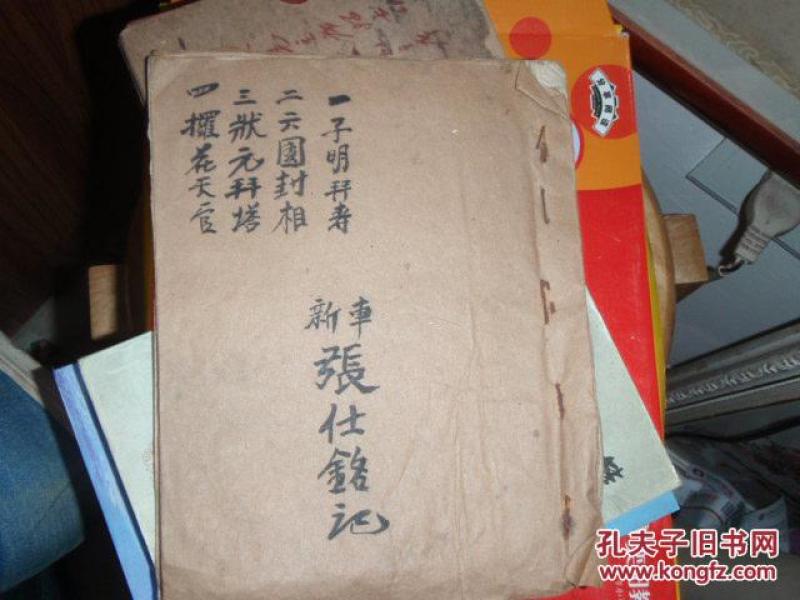 一子明拜寿
二六國封相
三狀元拜塔
四擺花天官
車新
張仕銘記
孔夫子旧书网
www.kongfz.com